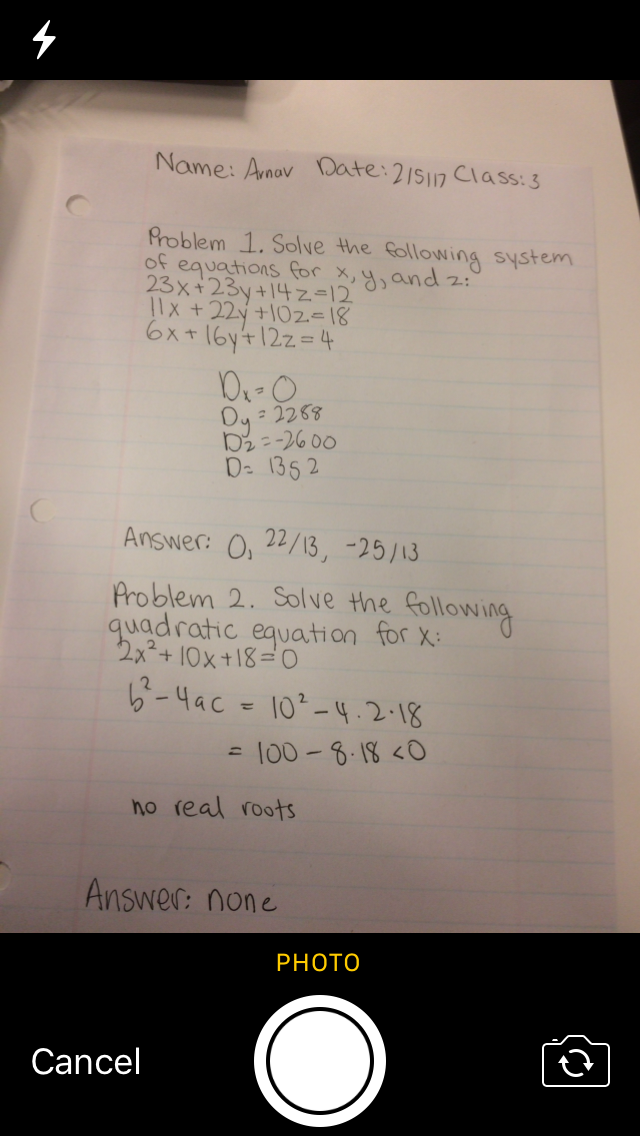 Name: Arnav Date: 2/5/17 Class: 3
Problem 1. Solve the following system
of equations for x, y, and z:
23x+23y+14z=12
11x+22y+10z=18
6x+16y+12z=4
Dx=0
Dy=2288
Dz=-2600
D=1352
Answer: 0, 22/13, -25/13
Problem 2. Solve the following
quadratic equation for x:
2x²+10x+18=0
b²-4ac = 10²-4·2·18
= 100-8·18<0
no real roots
Answer: none
PHOTO
Cancel